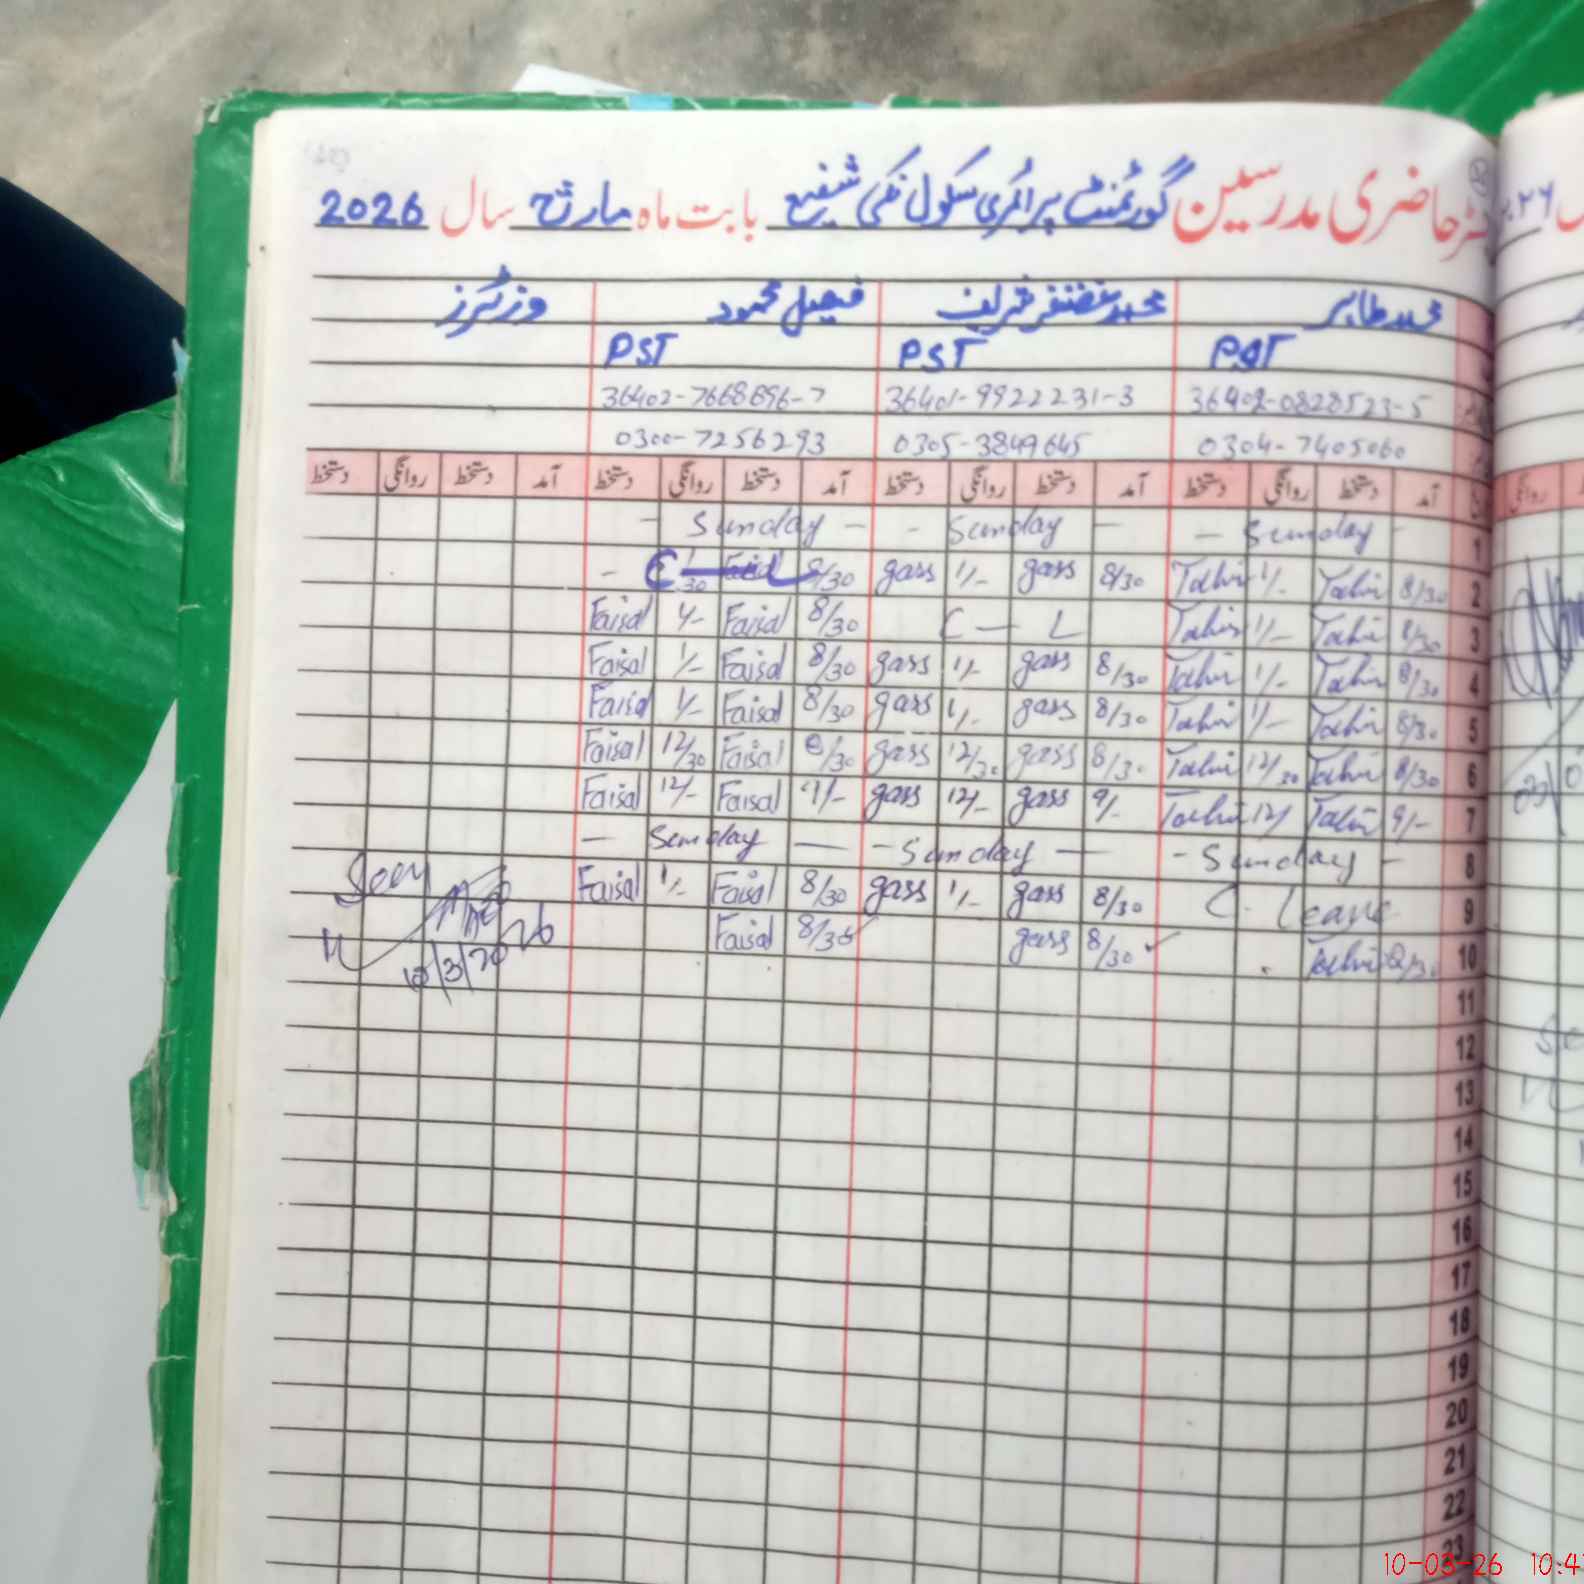 رجسٹر حاضری مدرسین گورنمنٹ پرائمری سکول نکی شفیع بابت ماہ مارچ سال 2026
محمد طاہر محمد غضنفر شریف فیصل محمود وزیٹرز
PST PST PST
36402-0828523-5 36401-9922231-3 36402-7668696-7
0304-7405060 0305-3849645 0300-7256293
آمد دستخط روانگی دستخط آمد دستخط روانگی دستخط آمد دستخط روانگی دستخط آمد دستخط روانگی دستخط
1 - Sunday - - Sunday - - Sunday -
2 8/30 Tahir 1/- Tahir 8/30 gass 1/- gass 8/30 Faisal C - L
3 8/30 Tahir 1/- Tahir C - L 8/30 Faisal 1/- Faisal
4 8/30 Tahir 1/- Tahir 8/30 gass 1/- gass 8/30 Faisal 1/- Faisal
5 8/30 Tahir 1/- Tahir 8/30 gass 1/- gass 8/30 Faisal 1/- Faisal
6 8/30 Tahir 12/30 Tahir 8/30 gass 12/30 gass 8/30 Faisal 12/30 Faisal
7 9/- Tahir 12/ Tahir 9/- gass 12/- gass 9/- Faisal 12/- Faisal
8 - Sunday - - Sunday - - Sunday -
9 C. Leave 8/30 gass 1/- gass 8/30 Faisal 1/- Faisal Seen
10 8/30 Tahir 8/30 gass 8/30 Faisal
10/3/2026
11
12
13
14
15
16
17
18
19
20
21
22
23
10-03-26 10:4